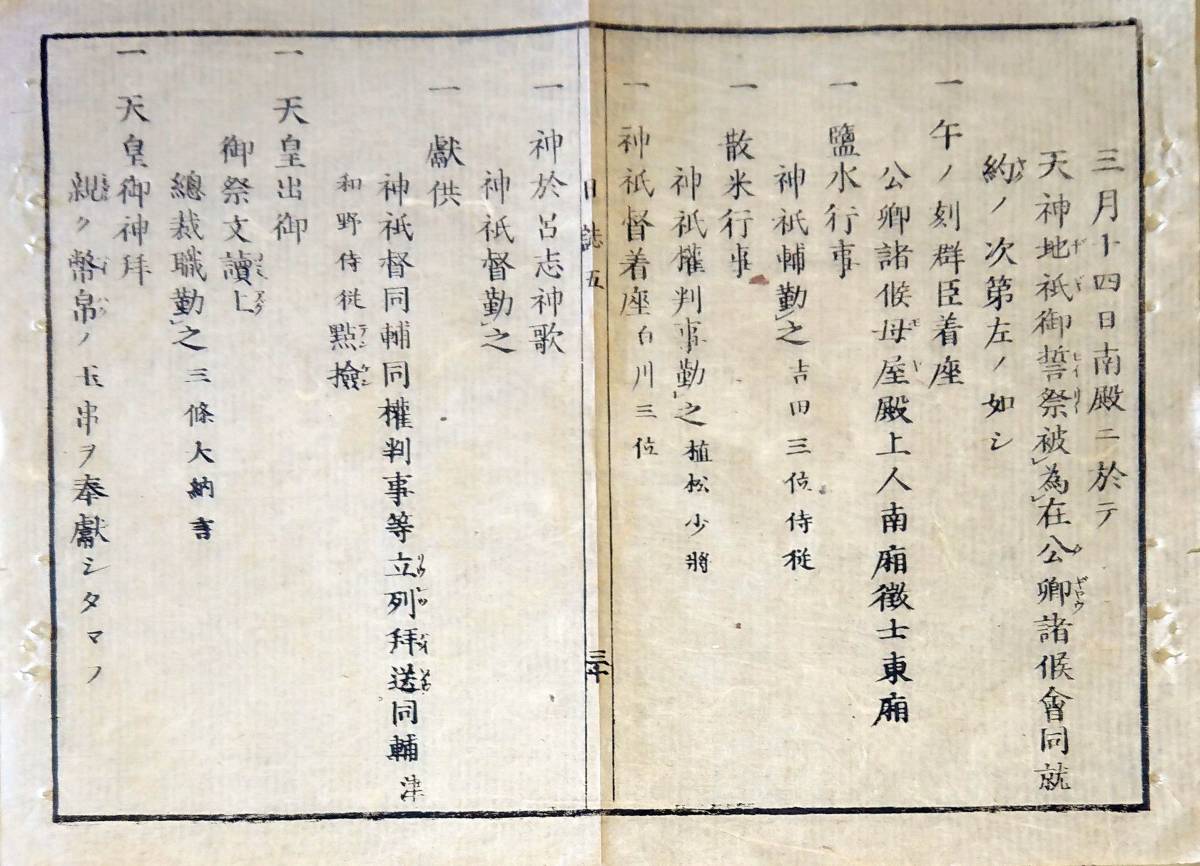 三月十四日南殿ニ於テ
天神地祇御誓祭被為在公卿諸候會同就
約ノ次第左ノ如シ
一 午ノ刻群臣着座
公卿諸候母屋殿上人南廂徴士東廂
一 鹽水行事
神祇輔勤之 吉田三位侍從
一 散米行事
神祇權判事勤之 植松少將
一 神祇督着座 白川三位
日誌五 三十
一 神於呂志神歌
神祇督勤之
一 獻供
神祇督同輔同權判事等立列拜送同輔 津
和野侍從 點撿
一 天皇出御
御祭文讀上
總裁職勤之 三條大納言
一 天皇御神拜
親ク幣帛ノ玉串ヲ奉獻シタマフ